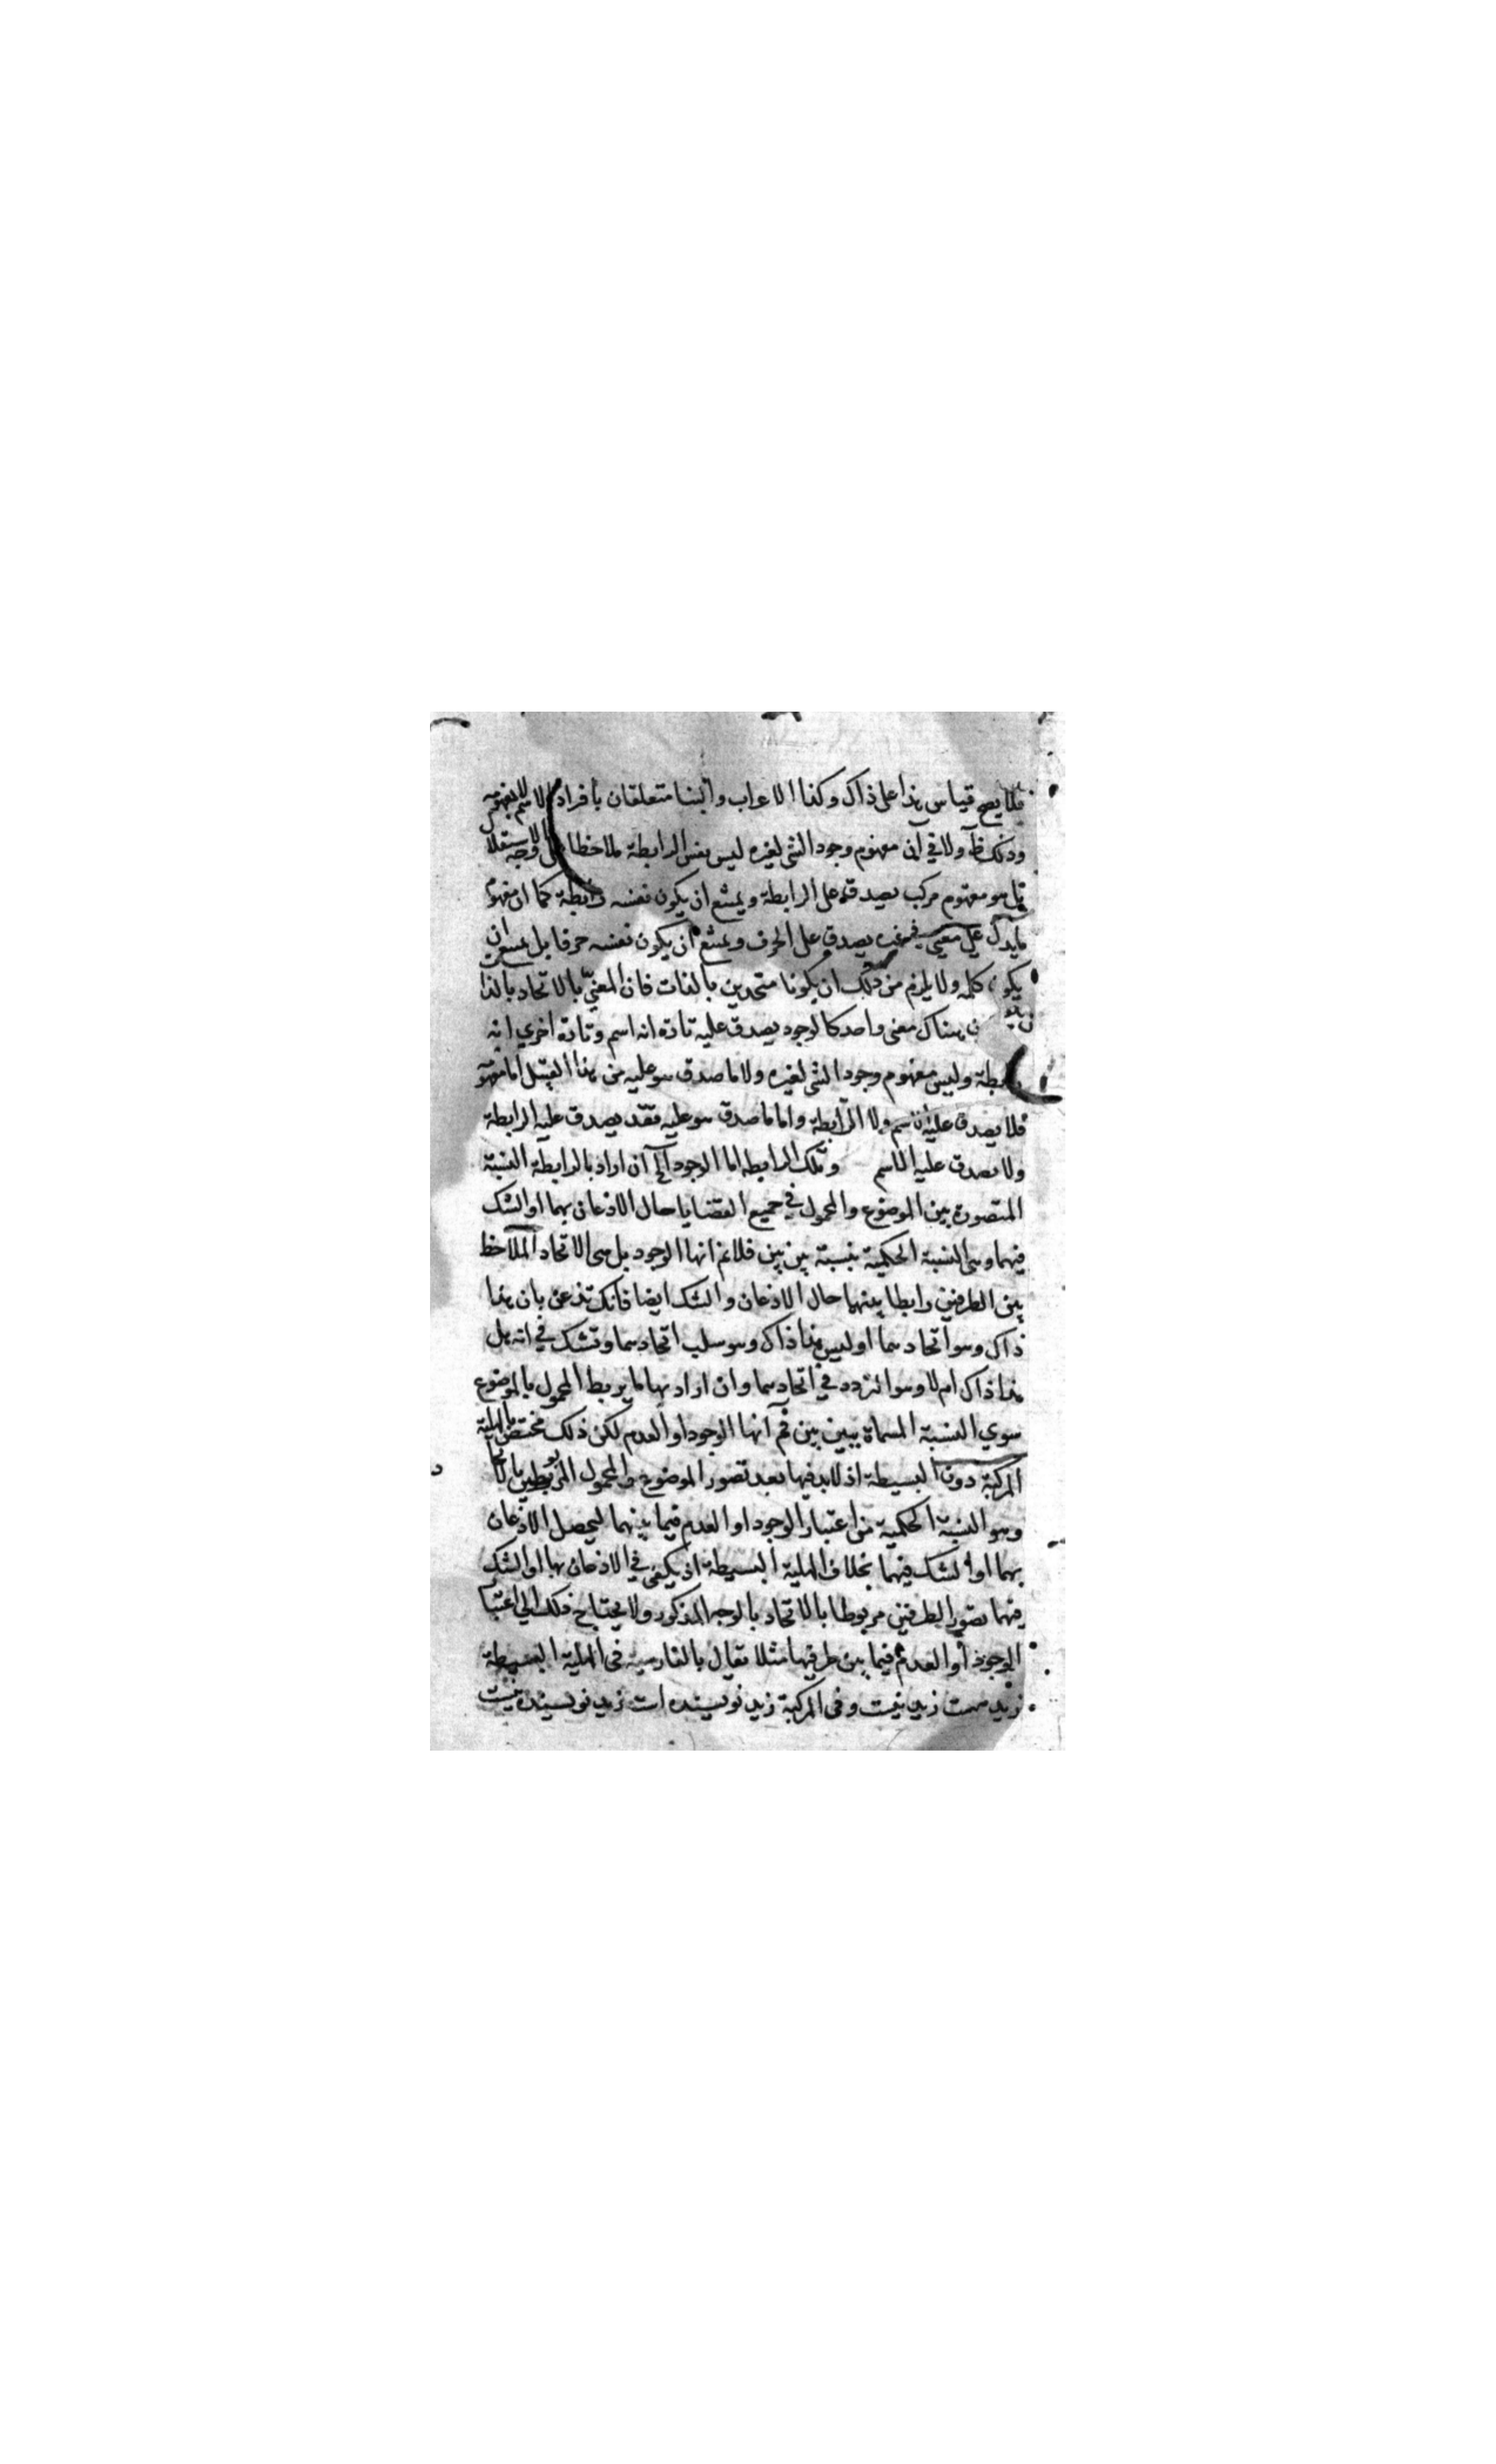 فلا يصح قياس هذا على ذاك وكذا الاعراب والبنا متعلقان بافراد الاسم لا بمفهومه
وذلك ظ ولا في ان مفهوم وجود الشى لغيره ليس نفس الرابطة ملاحظا على وجه الاستقلا
بل هو مفهوم مركب يصدق على الرابطة ويمتنع ان يكون نفسه رابطة كما ان مفهوم
مايدل على معنى في غيره يصدق على الحرف ويمتنع ان يكون نفسه حرفا بل يمتنع ان
يكون كلمه ولا يلزم من ذلك ان يكونا متحدين بالذات فان المعنى بالاتحاد بالذا
هناك معنى واحد كالوجود يصدق عليه تارة انه اسم وتارة اخرى انه
رابطة وليس مفهوم وجود الشى لغيره ولا ما صدق هو عليه من هذا القبيل اما مفهومه
فلا يصدق عليه الاسم ولا الرابطة واما ما صدق هو عليه فقد يصدق عليه الرابطة
ولا يصدق عليه الاسم وتلك الرابطه اما الوجود الخ ان اراد بالرابطة النسبة
المتصورة بين الموضوع والمحمول في جميع القضايا حال الاذعان بهما او الشك
فيهما وهى النسبة الحكمية بنسبة بين بين فلا نم انها الوجود بل هى الاتحاد الملاحظ
بين الطرفين رابطا بينهما حال الاذعان والشك ايضا فانك تذعن بان هذا
ذاك وهو اتحادهما او ليس هذا ذاك وهو سلب اتحادهما وتشك في انه هل
هذا ذاك ام لا وهو التردد في اتحادهما وان اراد بها ما يربط المحمول بالموضوع
سوي النسبة المسماة ببين بين فم انها الوجود او العدم لكن ذلك مختص بالهلية
المركبة دون البسيطة اذ لابد فيها بعد تصور الموضوع والمحمول المربوطين بالاتحا
وهو النسبة الحكمية من اعتبار الوجود او العدم فيما بينهما ليحصل الاذعان
بهما او الشك فيهما بخلاف الهلية البسيطة اذ يكفى في الاذعان بها او الشك
فيها تصور الطرفين مربوطا بالاتحاد بالوجه المذكور ولا يحتاج ذلك الى اعتبا
الوجود او العدم فيما بين طرفيها مثلا يقال بالفارسية فى الهلية البسيطة
زيد هست زيد نيست وفى المركبة زيد نويسنده است زيد نويسنده نيست